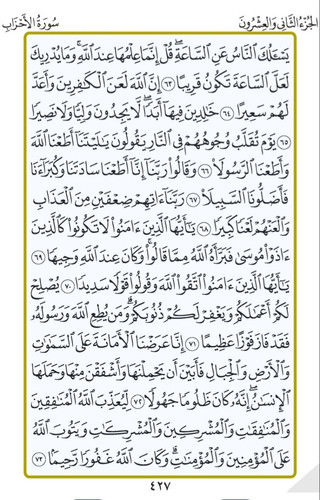 الجزء الثاني والعشرون
سورة الأحزاب
يَسْـَٔلُكَ ٱلنَّاسُ عَنِ ٱلسَّاعَةِ ۖ قُلْ إِنَّمَا عِلْمُهَا عِندَ ٱللَّهِ ۚ وَمَا يُدْرِيكَ
لَعَلَّ ٱلسَّاعَةَ تَكُونُ قَرِيبًا ٦٣ إِنَّ ٱللَّهَ لَعَنَ ٱلْكَٰفِرِينَ وَأَعَدَّ
لَهُمْ سَعِيرًا ٦٤ خَٰلِدِينَ فِيهَآ أَبَدًا ۖ لَّا يَجِدُونَ وَلِيًّا وَلَا نَصِيرًا
٦٥ يَوْمَ تُقَلَّبُ وُجُوهُهُمْ فِى ٱلنَّارِ يَقُولُونَ يَٰلَيْتَنَآ أَطَعْنَا ٱللَّهَ
وَأَطَعْنَا ٱلرَّسُولَا۠ ٦٦ وَقَالُوا۟ رَبَّنَآ إِنَّآ أَطَعْنَا سَادَتَنَا وَكُبَرَآءَنَا
فَأَضَلُّونَا ٱلسَّبِيلَا۠ ٦٧ رَبَّنَآ ءَاتِهِمْ ضِعْفَيْنِ مِنَ ٱلْعَذَابِ
وَٱلْعَنْهُمْ لَعْنًا كَبِيرًا ٦٨ يَٰٓأَيُّهَا ٱلَّذِينَ ءَامَنُوا۟ لَا تَكُونُوا۟ كَٱلَّذِينَ
ءَاذَوْا۟ مُوسَىٰ فَبَرَّأَهُ ٱللَّهُ مِمَّا قَالُوا۟ ۚ وَكَانَ عِندَ ٱللَّهِ وَجِيهًا ٦٩
يَٰٓأَيُّهَا ٱلَّذِينَ ءَامَنُوا۟ ٱتَّقُوا۟ ٱللَّهَ وَقُولُوا۟ قَوْلًا سَدِيدًا ٧٠ يُصْلِحْ
لَكُمْ أَعْمَٰلَكُمْ وَيَغْفِرْ لَكُمْ ذُنُوبَكُمْ ۗ وَمَن يُطِعِ ٱللَّهَ وَرَسُولَهُۥ
فَقَدْ فَازَ فَوْزًا عَظِيمًا ٧١ إِنَّا عَرَضْنَا ٱلْأَمَانَةَ عَلَى ٱلسَّمَٰوَٰتِ
وَٱلْأَرْضِ وَٱلْجِبَالِ فَأَبَيْنَ أَن يَحْمِلْنَهَا وَأَشْفَقْنَ مِنْهَا وَحَمَلَهَا
ٱلْإِنسَٰنُ ۖ إِنَّهُۥ كَانَ ظَلُومًا جَهُولًا ٧٢ لِّيُعَذِّبَ ٱللَّهُ ٱلْمُنَٰفِقِينَ
وَٱلْمُنَٰفِقَٰتِ وَٱلْمُشْرِكِينَ وَٱلْمُشْرِكَٰتِ وَيَتُوبَ ٱللَّهُ
عَلَى ٱلْمُؤْمِنِينَ وَٱلْمُؤْمِنَٰتِ ۗ وَكَانَ ٱللَّهُ غَفُورًا رَّحِيمًۢا ٧٣
٤٢٧